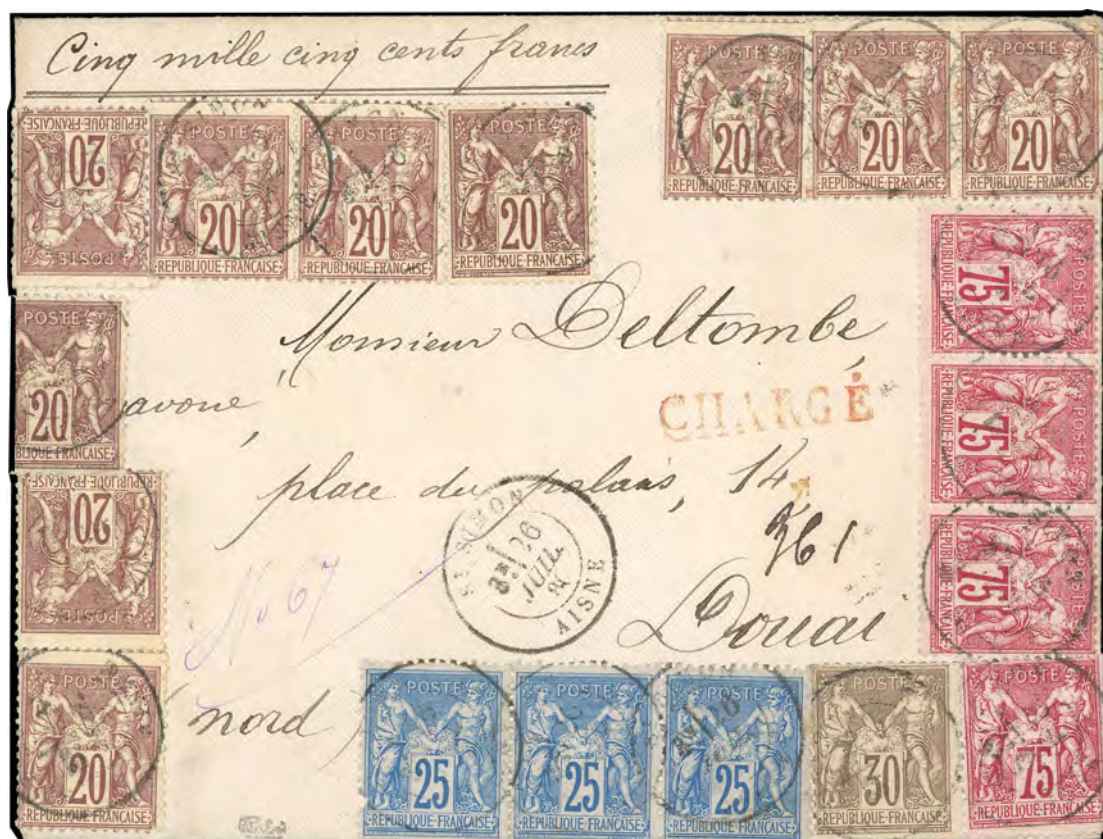 Cinq mille cinq cents francs
POSTE 20 REPUBLIQUE FRANÇAISE
POSTE 20 REPUBLIQUE FRANÇAISE
POSTE 20 REPUBLIQUE FRANÇAISE
POSTE 20 REPUBLIQUE FRANÇAISE
POSTE 20 REPUBLIQUE FRANÇAISE
POSTE 20 REPUBLIQUE FRANÇAISE
POSTE 20 REPUBLIQUE FRANÇAISE
POSTE 75 REPUBLIQUE FRANÇAISE
Monsieur Deltombe
POSTE 20 REPUBLIQUE FRANÇAISE
avoué,
CHARGÉ
POSTE 75 REPUBLIQUE FRANÇAISE
place du palais, 14
POSTE 20 REPUBLIQUE FRANÇAISE
ST SIMON
26
JUIL
84
AISNE
361
POSTE 75 REPUBLIQUE FRANÇAISE
No 67
Douai
nord
POSTE 20 REPUBLIQUE FRANÇAISE
POSTE 25 REPUBLIQUE FRANÇAISE
POSTE 25 REPUBLIQUE FRANÇAISE
POSTE 25 REPUBLIQUE FRANÇAISE
POSTE 30 REPUBLIQUE FRANÇAISE
POSTE 75 REPUBLIQUE FRANÇAISE